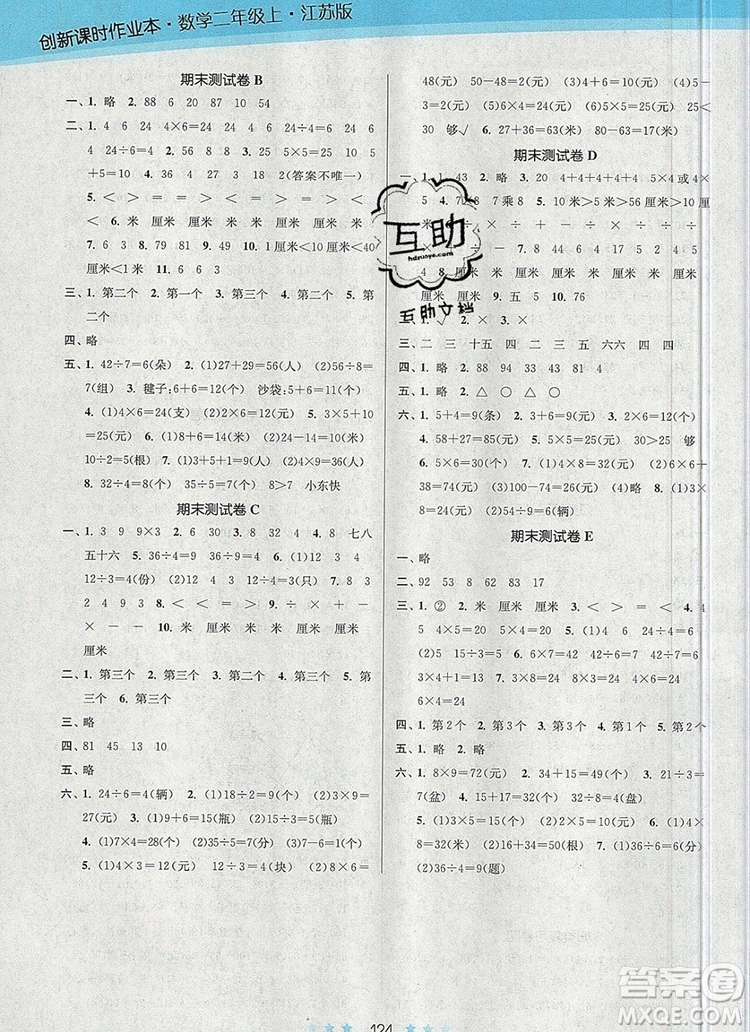 创新课时作业本·数学二年级上·江苏版
期末测试卷 B
一、1. 略 2. 88 6 20 87 10 54
二、1. 4 6 24 4×6=24 24 6 24 6
4 24 24÷6=4 3. 5 5 25 30 5 10 5
+5=10 4. 2 9 18 9 2(答案不唯一)
5. < > = = > < > < 6. 米 厘米
厘米 厘米 米
7. 6 3 8. 2 3 9.
10. 厘米<10厘米<40
厘米<1米 11. 6 6 3
三、1. 第二个 2. 第一个 3. 第三个 4. 第
二个
四、略
五、1. 42÷7=6(朵) 2. (1)27+29=56(人) (2)56÷8=
7(组) 3. 毽子:6+6=12(个) 沙袋:2×6=12(个)
4. (1)4×6=24(支) (2)2×6=12(元) 5. 3×5+10
=25(元) 6. (1)8+6=14(米) (2)14+6=20(米)
10÷2=5(根) 7. (1)3+5+1=9(人) (2)4×9=36(人)
8. 36÷6=6(个) 24÷3=8(个) 8>7 小东快
期末测试卷 C
一、1. 3 9 9×3 2. 6 30 3. 8 4. 8 七八
五十六 5. 36÷9=4 36÷4=9 6. 3 4
12÷3=4(份) 12÷4=3(个) 7. 3 3 8 3
2 4 9 3 8. < < = > 9. ÷ × + −
× − 10. 米 厘米 厘米 米 厘米 厘米
厘米
二、1. 第三个 2. 第三个 3. 第二个 4. 第三个 5. 第
三个 6. 第三个
三、略
四、81 45 13 10
五、略
六、1. 24÷6=4(辆) 2. (1)18÷2=9(个) (2)3×9=
27(元) 3. (1)9+6=15(瓶) (2)15÷3=5(瓶)
4. (1)7×4=28(个) (2)6÷6=1(个) (3)7−6=1(个)
5. (1)3×4=12(块) 12÷3=4(块) (2)2×9=18(元)
48(元) 50−48=2(元) (3)4+6=10(元) (4)5−
3=2(元) 5. (1)8÷4=2(元) (2)5×5=25(元) 25<
30 够√ 6. 27+36=63(米) 90−63=27(米)
期末测试卷 D
一、1. 1 43 2. 略 3. 20 4+4+4+4+4 5×4或4
×5 4. 7 8 7乘8 5. 10厘米>5厘米>1厘米
÷ × ÷ − 7. 8 44 6 4 2
厘米 米 厘米 厘米 米
厘米 厘米 9. 五 5 10. 76
二、1. √ 2. × 3. ×
三、二 三 十五 四 三 二 五 六六 四 四 四
四、1. 略 2. 88 94 43 83 4 4
五、1. 略 2. △ ○ △ ○
六、1. 5+4=9(条) 2. 3+6=9(元) 3. 2×6=12(个)
4. 58+27=85(元) 5. 5×5=25(元) 30>25 够
6. 5×6=30(个) 7. (1)4×8=32(元) (2)6×4
=24(元) (3)100−74=26(元) 8. (1)6×9=54(个)
54÷6=9(个) (2)54÷6=9(辆)
期末测试卷 E
一、略
二、92 53 8 62 83 17
三、1. ② 2. 米 厘米 米 厘米 3. < > < > 4. 4
5 4×5=20 5. 5 4 5×4=20 6. (1)15÷3=5
(2)15÷5=3 7. 3×4+3=15 8. 4 3 1
3×4+1=13 9. 6 4 6×4=24
5×4+4=24
四、1. 第2个 2. 第3个 3. 第3个 4. 第1个 5. 第2个
五、1. 略 2. 略
六、1. 8×9=72(元) 2. 14+35=49(元) 3. 42÷6=
7(盆) 4. 15+17=32(个) 32÷8=4(盘)
5. (1)4×5=20(元) (2)16+20=36(元) 6. (1)4×8
=32(元) (2)3×8=24(元) 7. (1)3×2=6(分)
(2)36÷4=9(题)
互助
hdzuoye.com
互助文档
124
答案圈
MXQE.COM